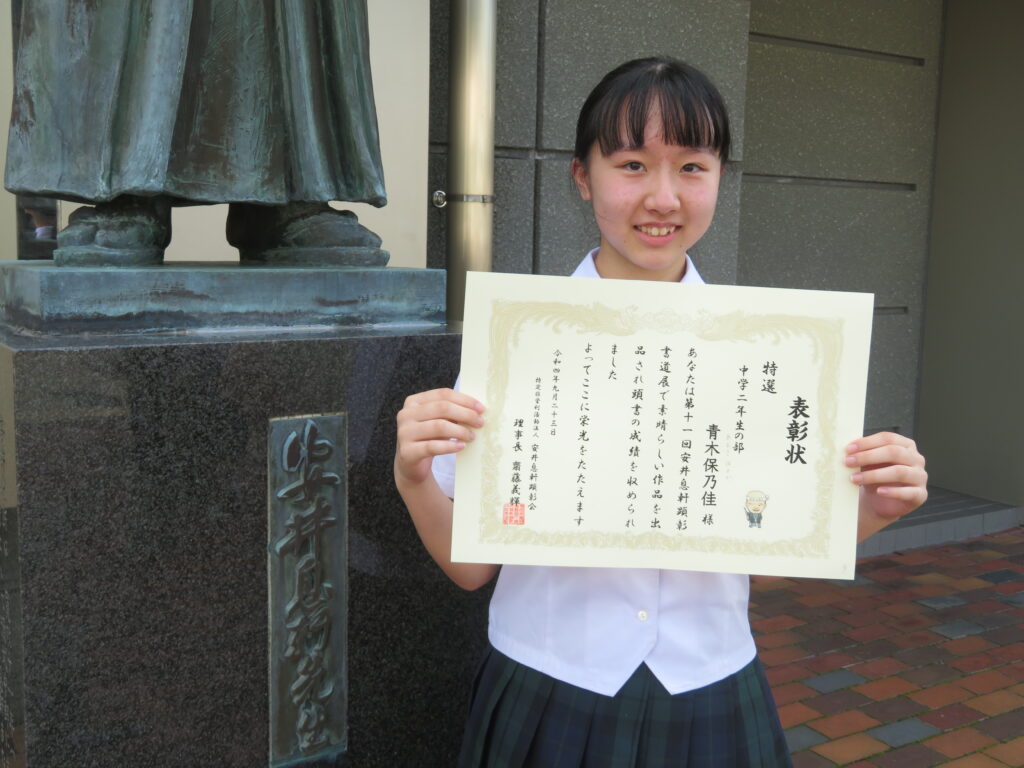 安井息軒先生
表彰状
特選
中学二年生の部
青木保乃佳 様
あなたは第十一回安井息軒顕彰
書道展で素晴らしい作品を出
品され頭書の成績を収められ
ました
よってここに栄光をたたえます
令和四年九月二十三日
特定非営利活動法人 安井息軒顕彰会
理事長 齋藤義輝